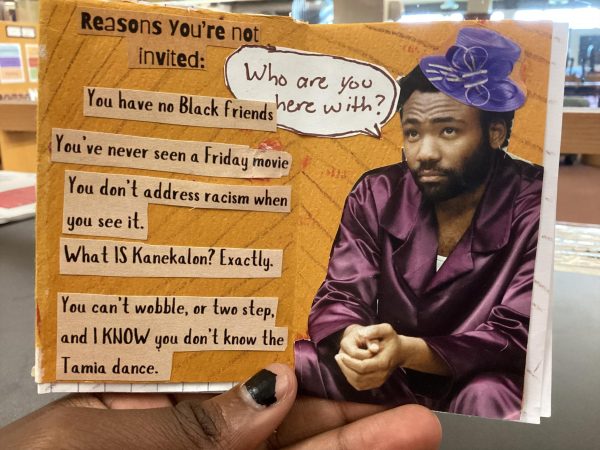 Reasons You're not
invited:
You have no Black Friends
You've never seen a Friday movie
You don't address racism when
you see it.
What IS Kanekalon? Exactly.
You can't wobble, or two step,
and I KNOW you don't know the
Tamia dance.
Who are you
here with?